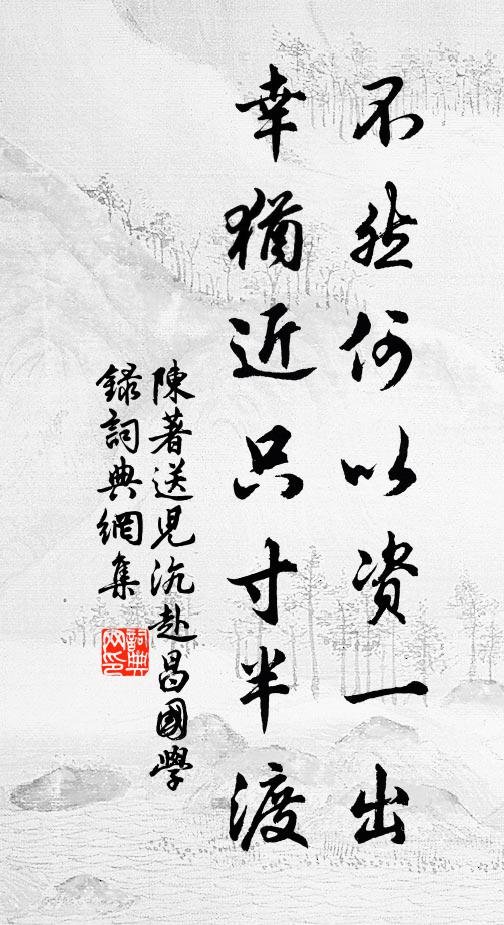 不然何以資一出
幸猶近只寸半渡
陳著送兒沆赴昌國學
錄詞典網集
詞典
网印